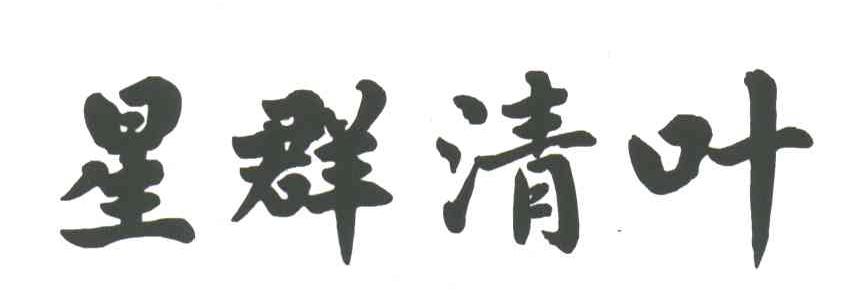 星群清叶